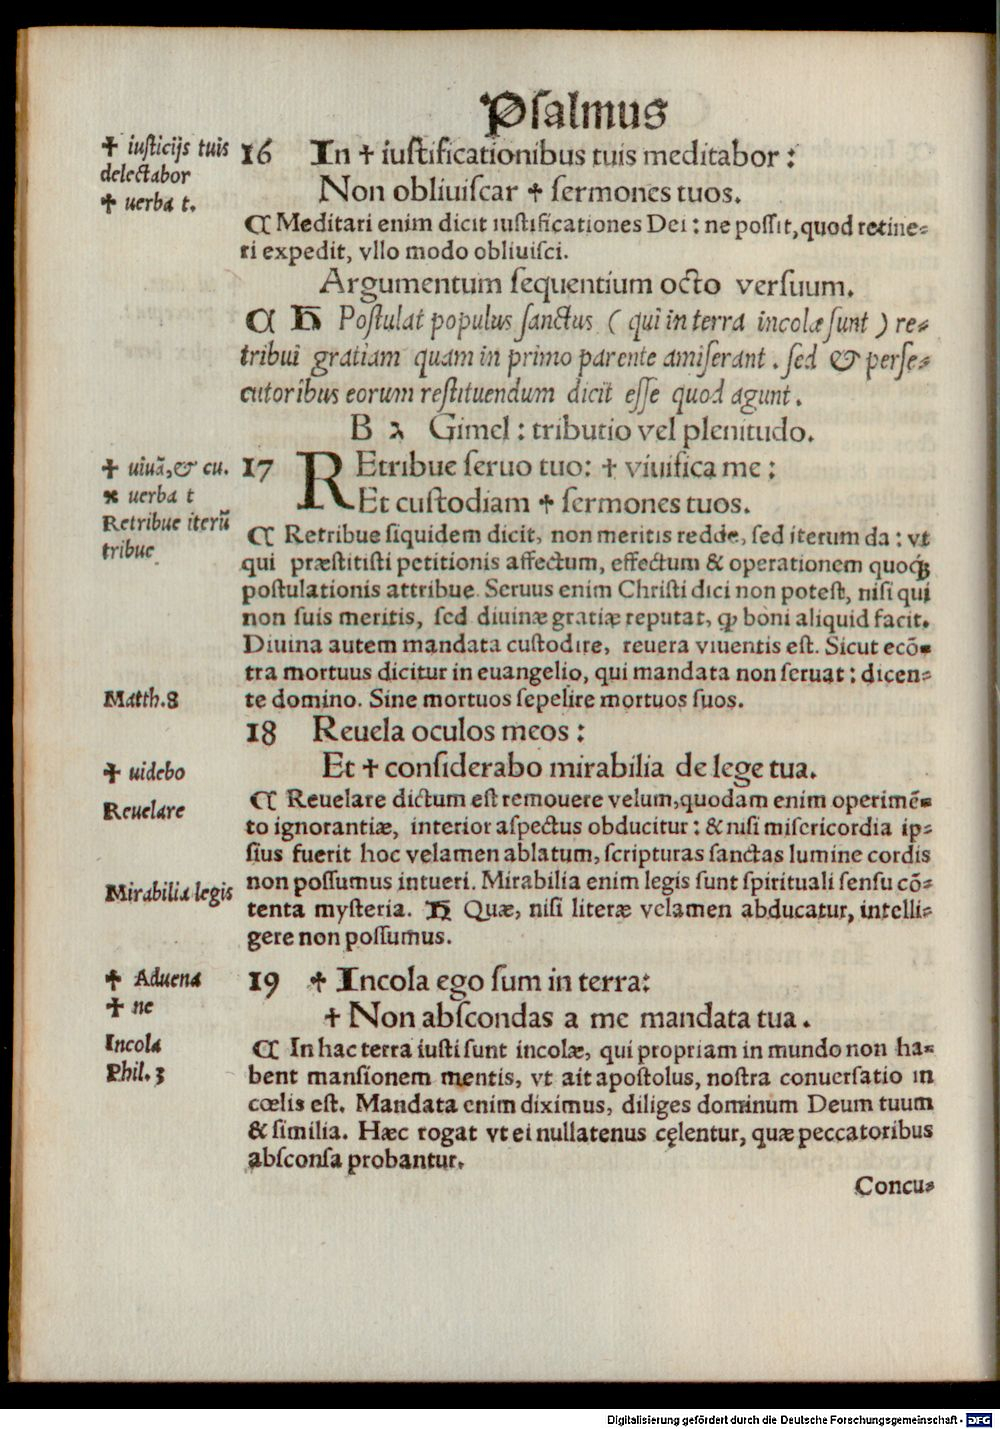 Psalmus
✝ iusticijs tuis
delectabor
✝ uerba t.
16 In ✝ iustificationibus tuis meditabor :
Non obliuiscar ✝ sermones tuos.
Meditari enim dicit iustificationes Dei : ne possit, quod retine-
ri expedit, vllo modo obliuisci.
Argumentum sequentium octo versuum.
Postulat populus sanctus ( qui in terra incolæ sunt ) re-
tribui gratiam quam in primo parente amiserant . sed & perse-
cutoribus eorum restituendum dicit esse quod agunt .
B ג Gimel : tributio vel plenitudo.
✝ uiuã, & cu.
✠ uerba t
Retribue iterũ
tribue
17 REtribue seruo tuo: ✝ viuifica me :
Et custodiam ✝ sermones tuos.
Retribue siquidem dicit, non meritis redde, sed iterum da : vt
qui præstitisti petitionis affectum, effectum & operationem quoqꝫ
postulationis attribue. Seruus enim Christi dici non potest, nisi qui
non suis meritis, sed diuinæ gratiæ reputat, ꝙ boni aliquid facit.
Diuina autem mandata custodire, reuera viuentis est. Sicut ecõ-
tra mortuus dicitur in euangelio, qui mandata non seruat : dicen-
te domino. Sine mortuos sepelire mortuos suos.
Matth.8
18 Reuela oculos meos :
Et ✝ considerabo mirabilia de lege tua.
✝ uidebo
Reuelare
Reuelare dictum est remouere velum, quodam enim operimẽ-
to ignorantiæ, interior aspectus obducitur : & nisi misericordia ip-
sius fuerit hoc velamen ablatum, scripturas sanctas lumine cordis
non possumus intueri. Mirabilia enim legis sunt spirituali sensu cõ-
tenta mysteria. Quæ, nisi literæ velamen abducatur, intelli-
gere non possumus.
Mirabilia legis
✝ Aduena
✝ ne
Incola
Phil. 3
19 ✝ Incola ego sum in terra:
✝ Non abscondas a me mandata tua .
In hac terra iusti sunt incolæ, qui propriam in mundo non ha-
bent mansionem mentis, vt ait apostolus, nostra conuersatio in
cœlis est. Mandata enim diximus, diliges dominum Deum tuum
& similia. Hæc rogat vt ei nullatenus cęlentur, quæ peccatoribus
absconsa probantur.
Concu-
Digitalisierung gefördert durch die Deutsche Forschungsgemeinschaft - DFG